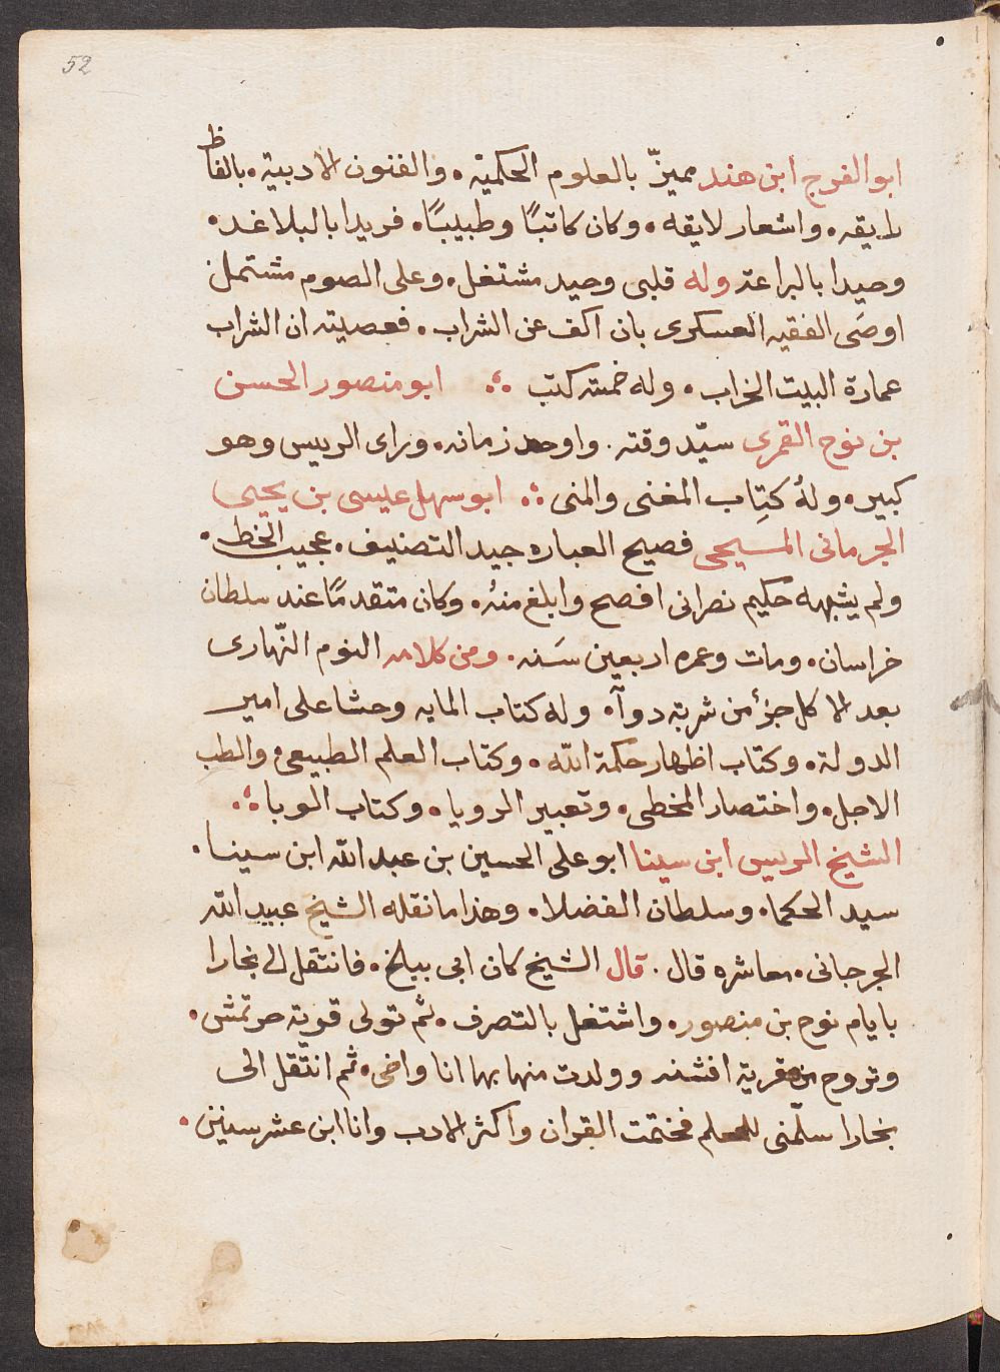 52
ابو الفرج ابن هند مميزّ بالعلوم الحكمية • والفنون الادبية • بالفاظ
رايقه • واشعار لايقه • وكان كاتبًا وطبيبًا • فريدا بالبلاغه •
وحيدا بالبراعة وله قلبى وحيد مشتغل • وعلى الصوم مشتمل
اوصَى الفقيه العسكرى بان اكف عن الشراب • فعصيته ان الشراب
عمارة البيت الخراب • وله خمسة كتب ؞ ابو منصور الحسن
بن نوح القمرى سيّد وقته . واوحد زمانه • وراى الرييس وهو
كبير • ولهُ كتِاب المغنى والمنى ؞ ابو سهل عليسى بن يحيى
الجرمانى المسيحى فصيح العباره جيد التصنيف • عجيب الخط •
ولم يشبهه حكيم نصرانى افصح وابلغ منهُ • وكان متقدمًا عند سلطان
خراسان • ومات وعمره اربعين سَنه • ومن كلامه النوم النّهارى
بعد الاكل جزؤ من شربة دوآء وله كتاب المايه وحشا على امير
الدولة • وكتاب اظهار حكمة الله • وكتاب العلم الطبيعى • والطب
الاجل • واختصار المخطى • وتعبير الرويا • وكتاب الوبا ؞
الشيخ الرييس ابن سينا ابو على الحسين بن عبد الله ابن سينا •
سيد الحكما • وسلطان الفضلا • وهذا ما نقله الشيخ عبيد الله
الجرجانى • معاشره قال . قال الشيخ كان ابى ببلخ • فانتقل الى بخارا
بايام نوح بن منصور • واشتغل بالتصرف • ثم تولى قرية حرتمش •
وتزوج من قرية افشنه وولدت منها بها انا واخى • ثم انتقل الى
بخارا سلّمنى للمعلم فختمت القران واكثر الادب وانا ابن عشر سنين •